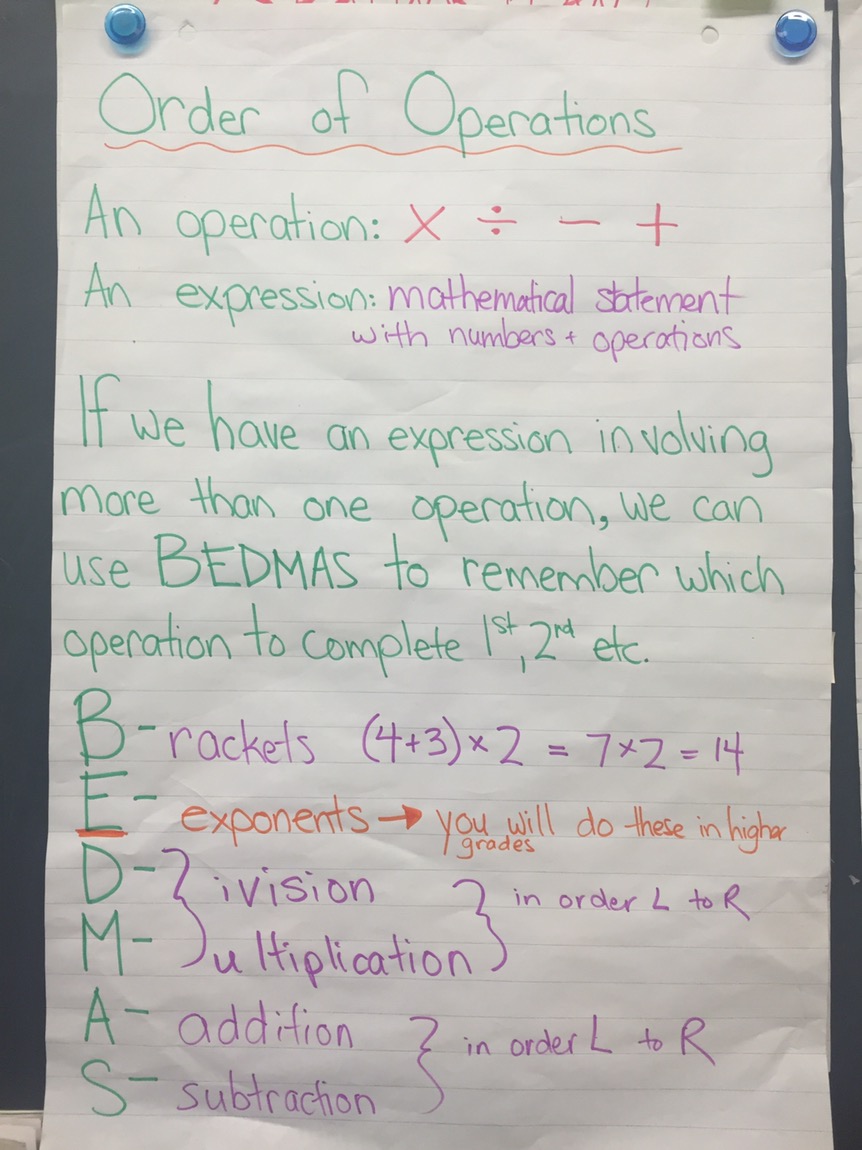 Order of Operations
An operation: × ÷ − +
An expression: mathematical statement
with numbers + operations
If we have an expression involving
more than one operation, we can
use BEDMAS to remember which
operation to complete 1st, 2nd etc.
B- rackets (4+3)×2 = 7×2 = 14
E- exponents → you will do these in higher
grades
D- } ivision } in order L to R
M- ultiplication
A- addition } in order L to R
S- subtraction